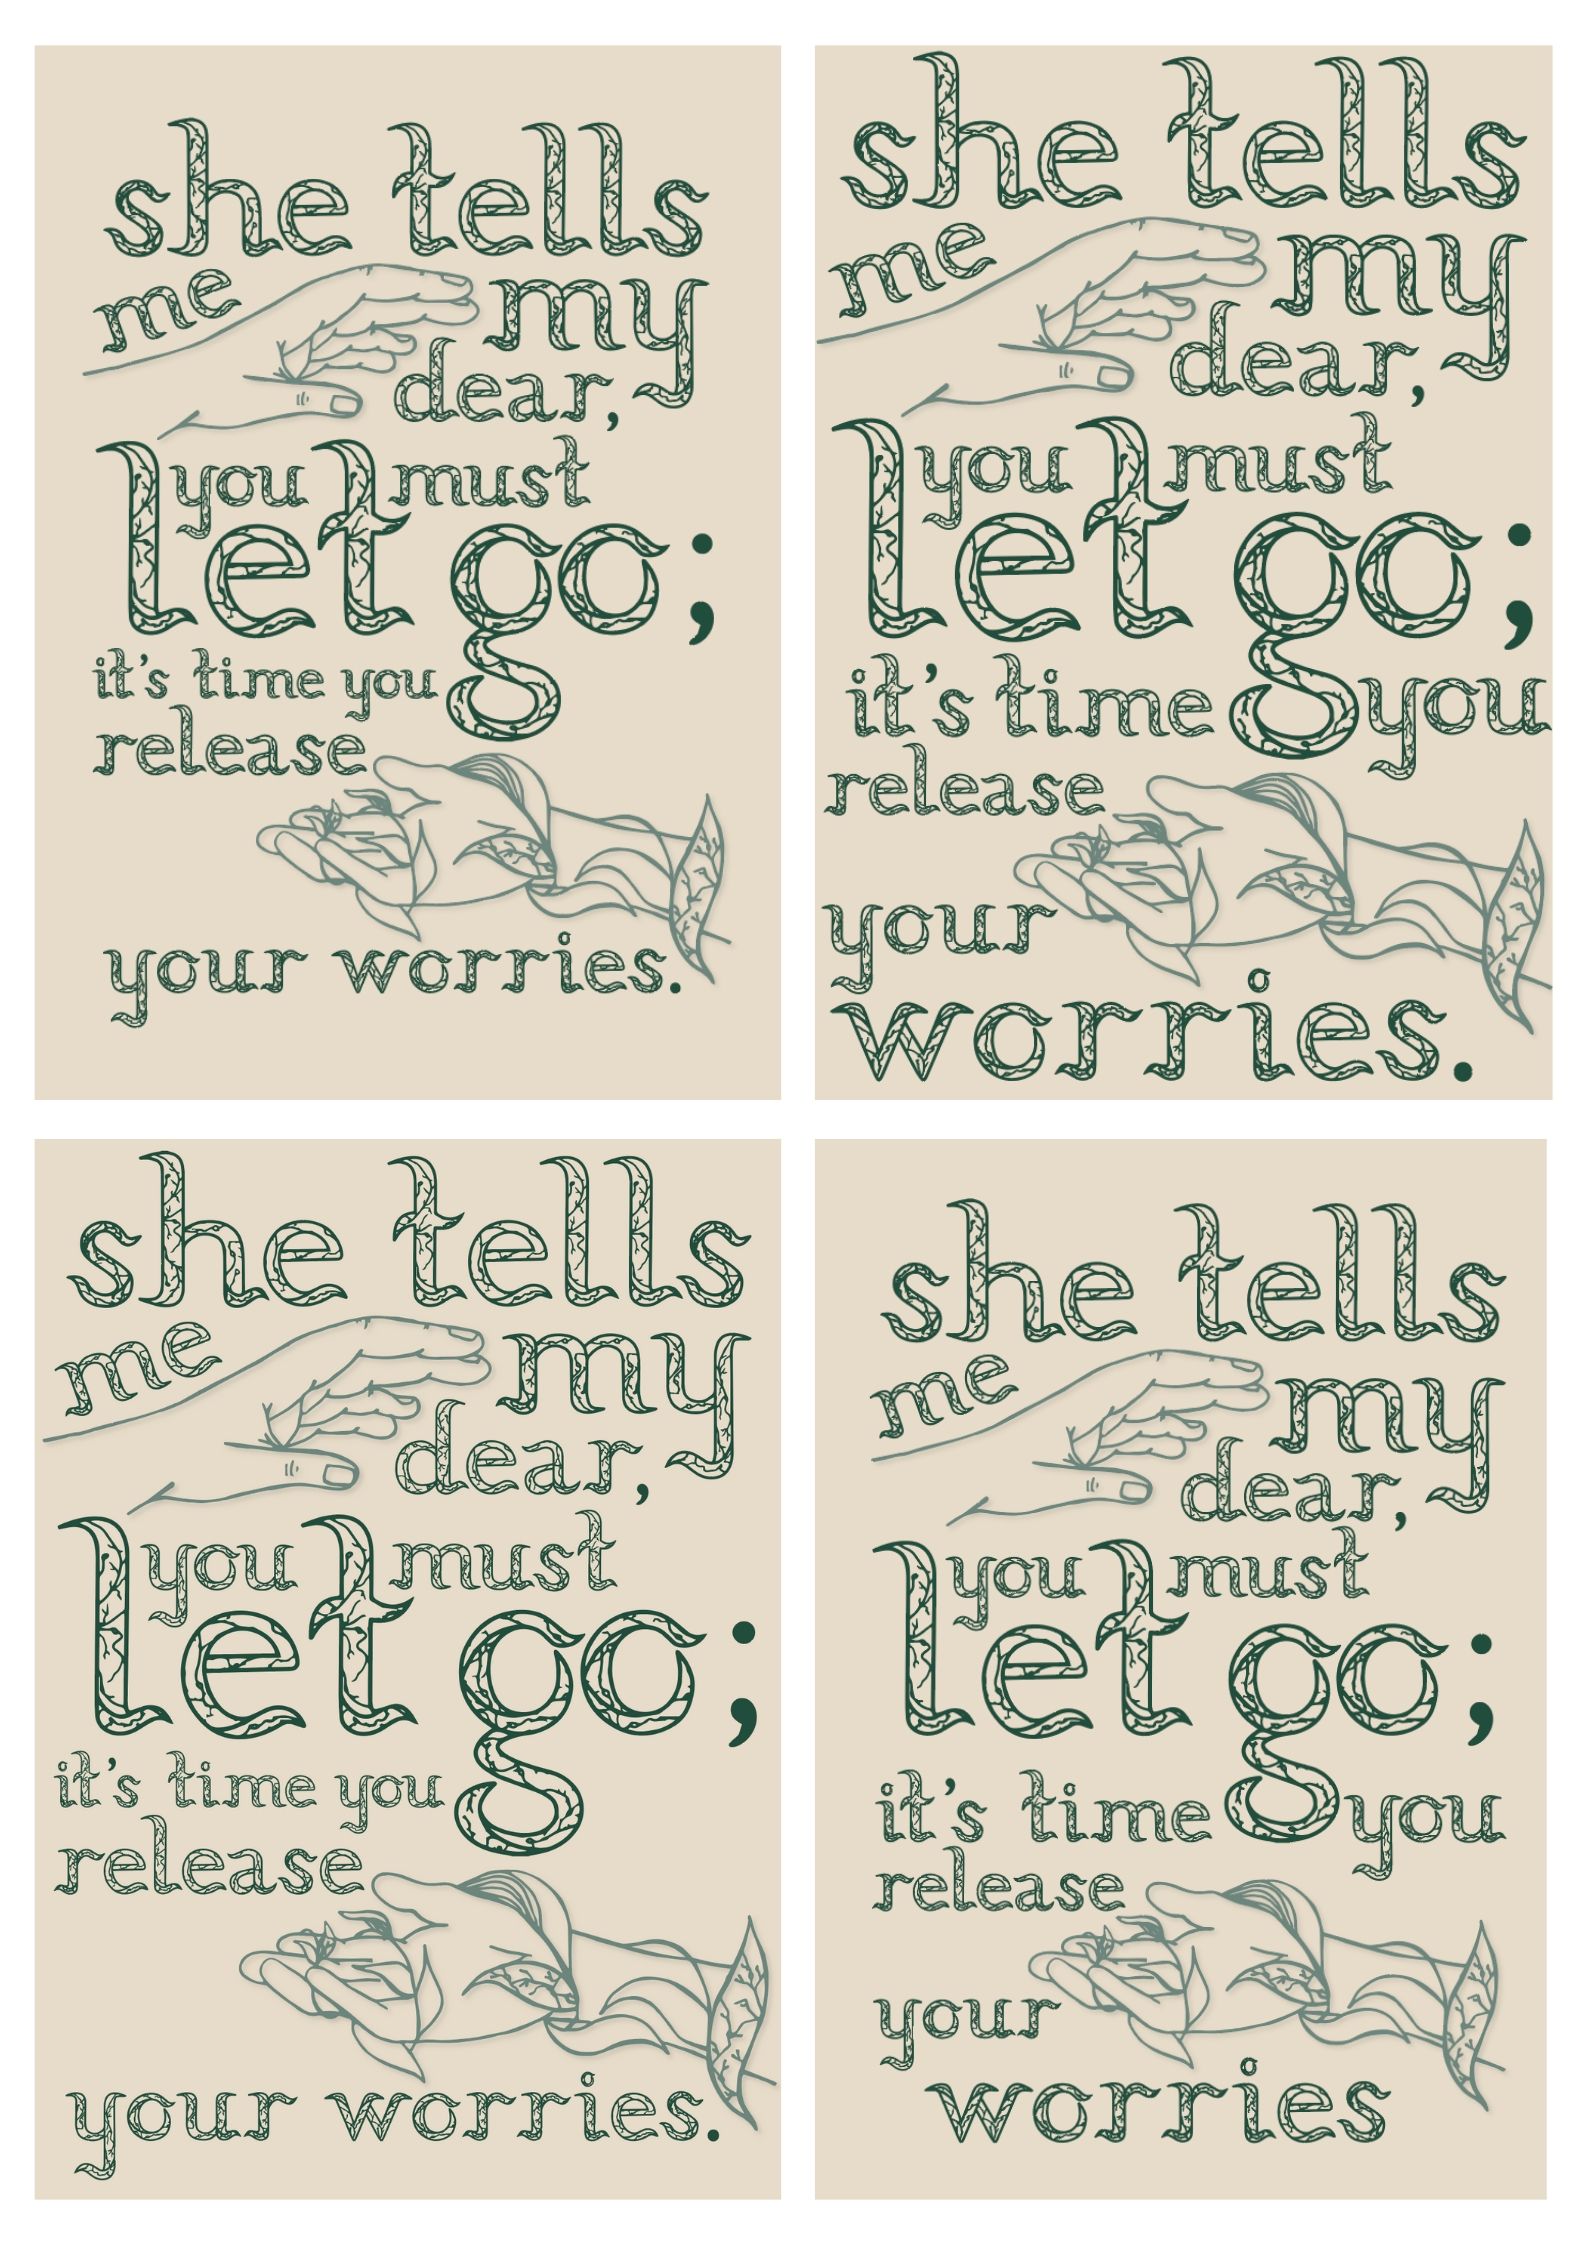 she tells
me my
dear,
you must
let go;
it's time you
release
your worries.
she tells
me my
dear,
you must
let go;
it's time you
release
your
worries.
she tells
me my
dear,
you must
let go;
it's time you
release
your worries.
she tells
me my
dear,
you must
let go;
it's time you
release
your
worries